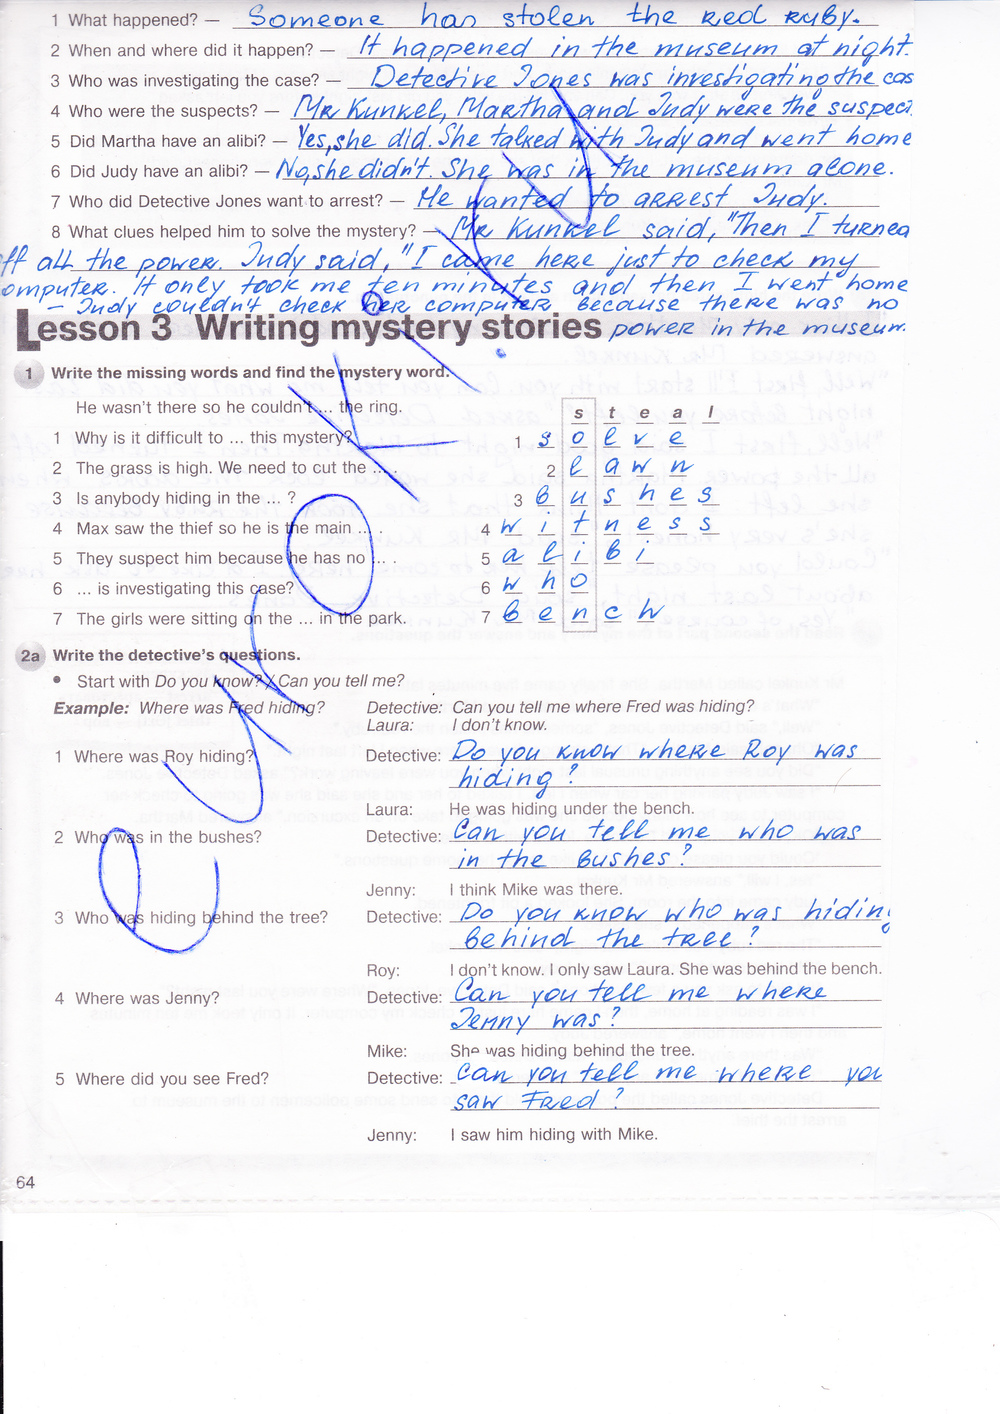 1 What happened? — Someone has stolen the red ruby.
2 When and where did it happen? — It happened in the museum at night.
3 Who was investigating the case? — Detective Jones was investigating the cas
4 Who were the suspects? — Mr Kunkel, Martha and Judy were the suspec
5 Did Martha have an alibi? — Yes, she did. She talked with Judy and went home
6 Did Judy have an alibi? — No, she didn't. She was in the museum alone.
7 Who did Detective Jones want to arrest? — He wanted to arrest Judy.
8 What clues helped him to solve the mystery? — Mr Kunkel said, "Then I turned
ff all the power. Judy said, "I came here just to check my
omputer. It only took me ten minutes and then I went home
— Judy couldn't check her computer because there was no
Lesson 3 Writing mystery stories power in the museum.
1 Write the missing words and find the mystery word.
He wasn't there so he couldn't ... the ring. s t e a l
1 Why is it difficult to ... this mystery? 1 s o l v e
2 The grass is high. We need to cut the ... . 2 l a w n
3 Is anybody hiding in the ... ? 3 b u s h e s
4 Max saw the thief so he is the main ... . 4 w i t n e s s
5 They suspect him because he has no ... . 5 a l i b i
6 ... is investigating this case? 6 w h o
7 The girls were sitting on the ... in the park. 7 b e n c h
2a Write the detective's questions.
• Start with Do you know? / Can you tell me?
Example: Where was Fred hiding? Detective: Can you tell me where Fred was hiding?
Laura: I don't know.
1 Where was Roy hiding? Detective: Do you know where Roy was
hiding?
Laura: He was hiding under the bench.
2 Who was in the bushes? Detective: Can you tell me who was
in the bushes?
Jenny: I think Mike was there.
3 Who was hiding behind the tree? Detective: Do you know who was hiding
behind the tree?
Roy: I don't know. I only saw Laura. She was behind the bench.
4 Where was Jenny? Detective: Can you tell me where
Jenny was?
Mike: She was hiding behind the tree.
5 Where did you see Fred? Detective: Can you tell me where you
saw Fred?
Jenny: I saw him hiding with Mike.
64